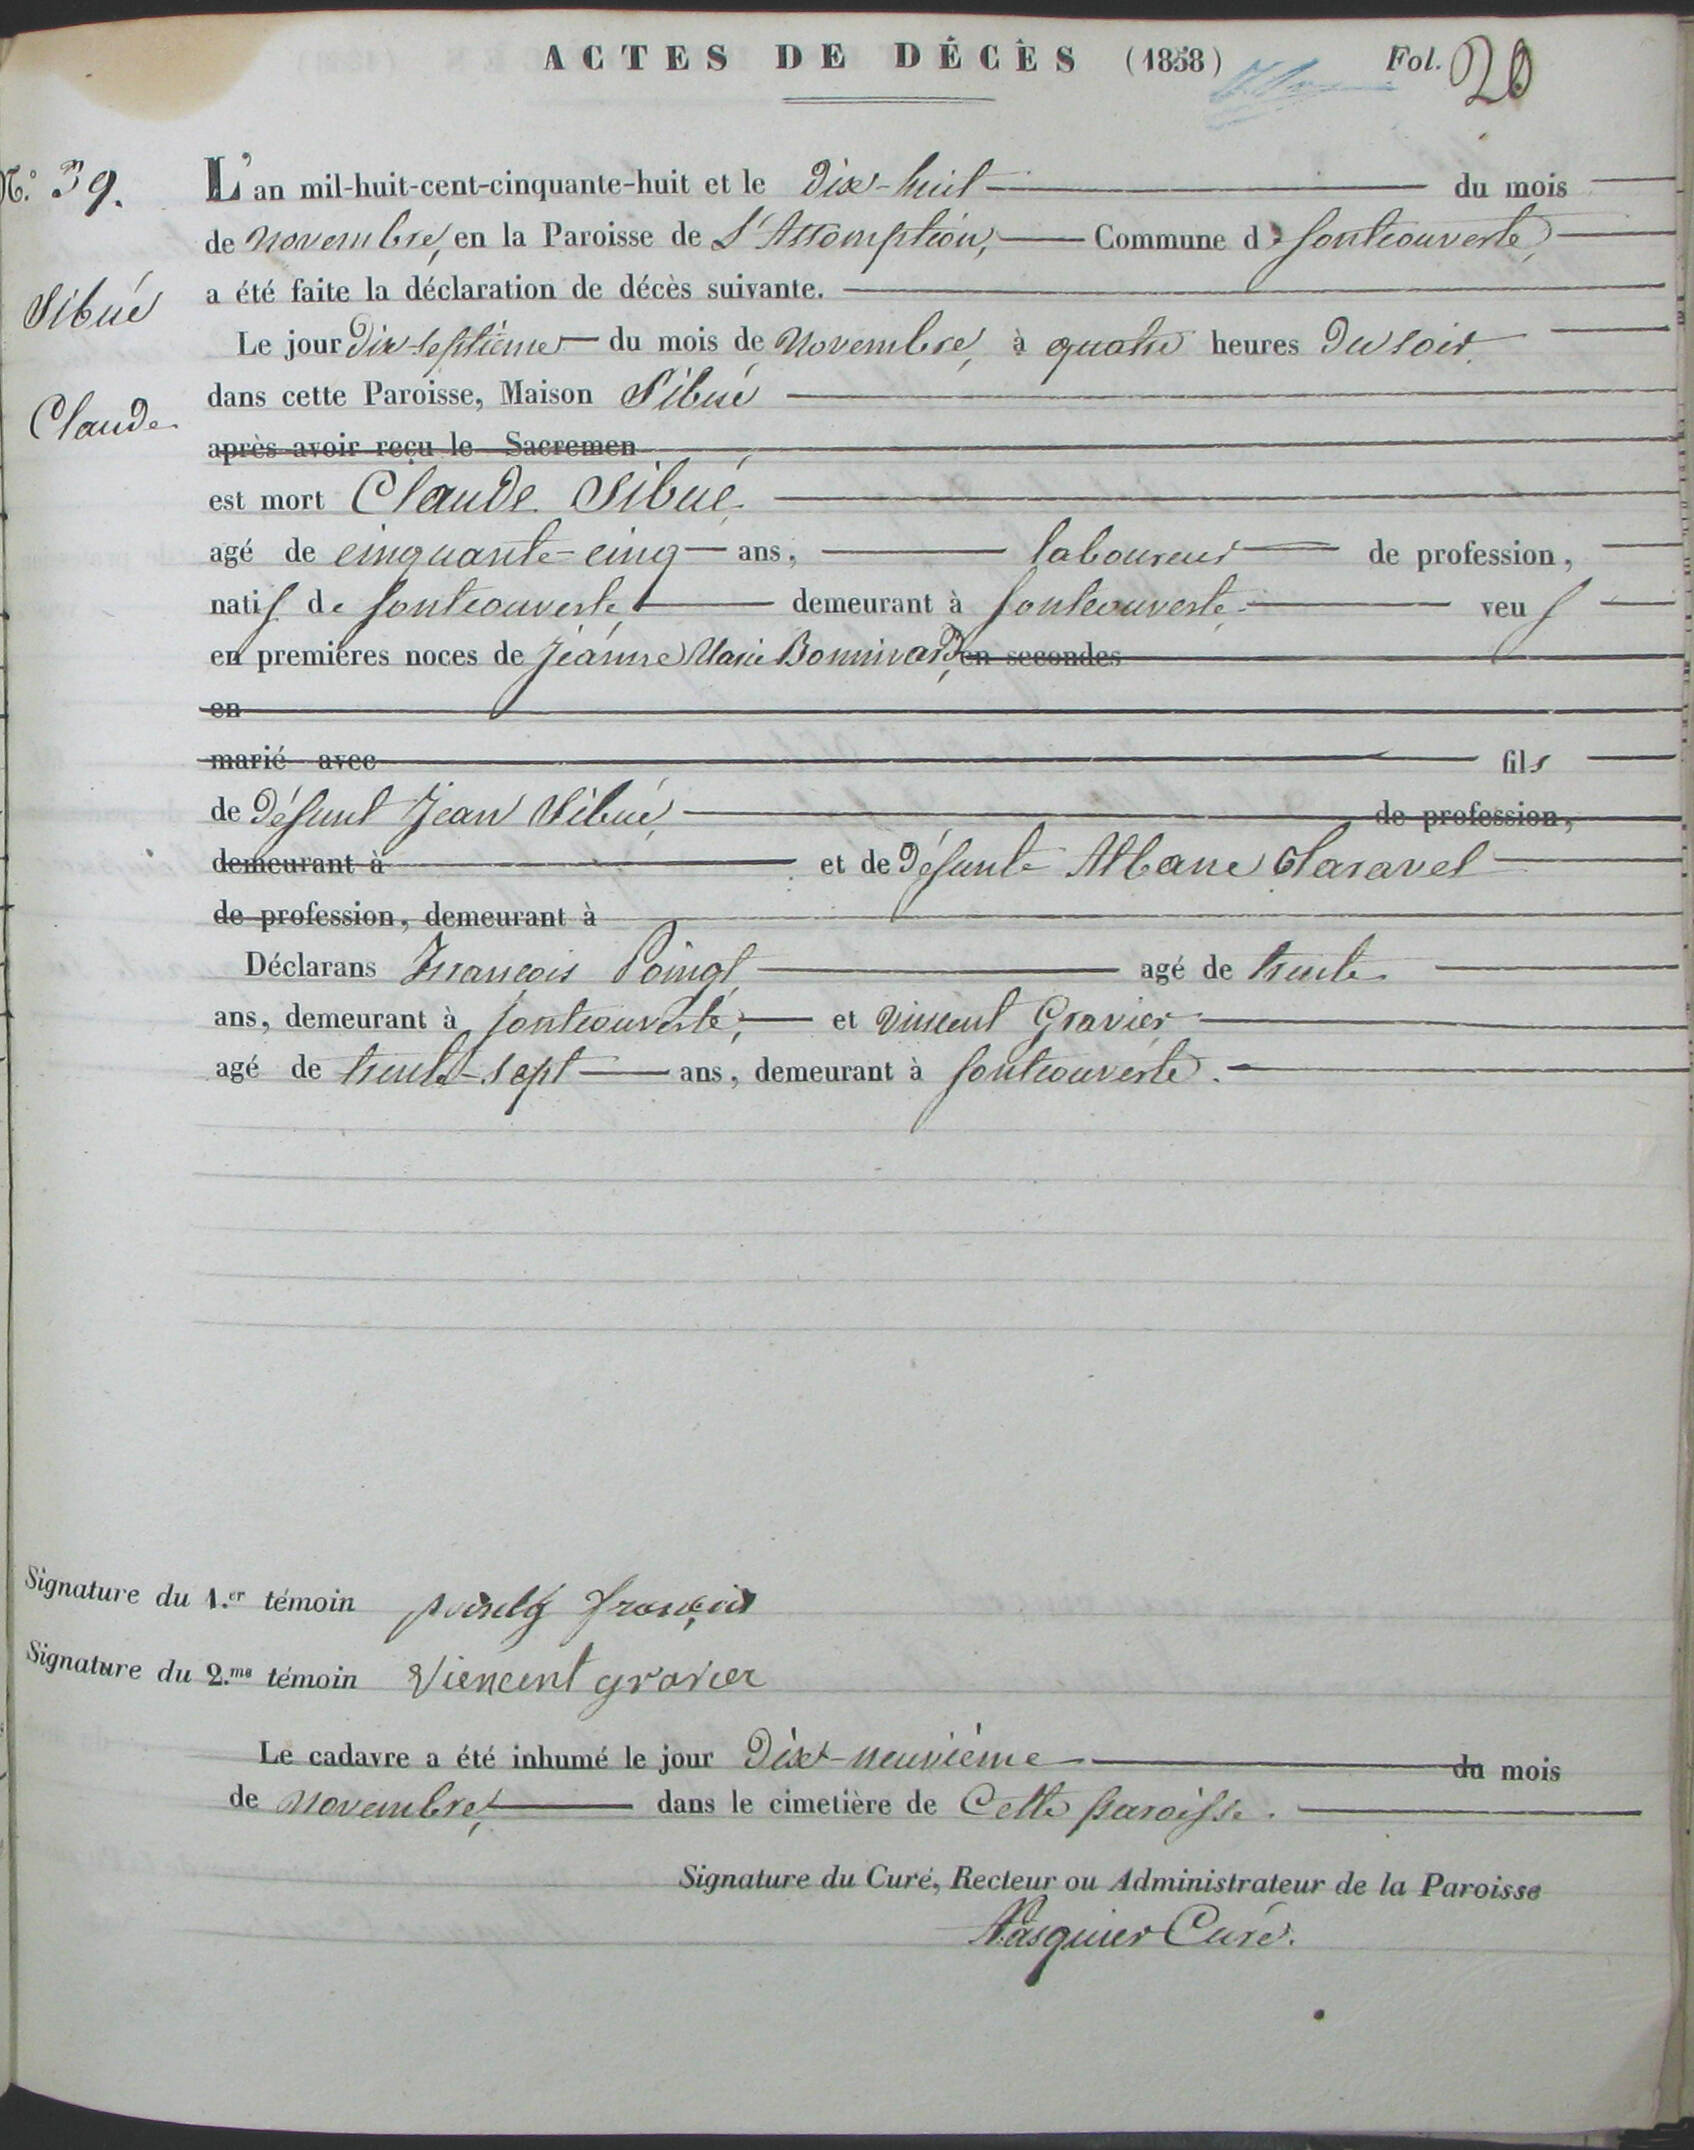 ACTES DE DÉCÈS (1858) Fol. 20
N.º 39. L'an mil-huit-cent-cinquante-huit et le dix-huit du mois
de novembre, en la Paroisse de L'Assomption, Commune de fontcouverte,
a été faite la déclaration de décès suivante.
Sibué
Le jour dix-septième du mois de Novembre, à quatre heures du soir
dans cette Paroisse, Maison Sibué
Claude
après avoir reçu le Sacremen
est mort Claude Sibué,
agé de cinquante-cinq ans, laboureur de profession,
natif de fontcouverte, demeurant à fontcouverte, veuf
en premières noces de Jeanne Marie Bonnivard, en secondes
en
marié avec fils
de défunt Jean Sibué, de profession,
demeurant à et de défunte Albane Claravel
de profession, demeurant à
Déclarans François Poingt, agé de trente
ans, demeurant à fontcouverte, et vincent Gravier
agé de trente-sept ans, demeurant à fontcouverte.
Signature du 1.er témoin françois
Signature du 2.me témoin Viencent gravier
Le cadavre a été inhumé le jour dix-neuvième du mois
de novembre, dans le cimetière de cette paroisse.
Signature du Curé, Recteur ou Administrateur de la Paroisse
Pasquier Curé.